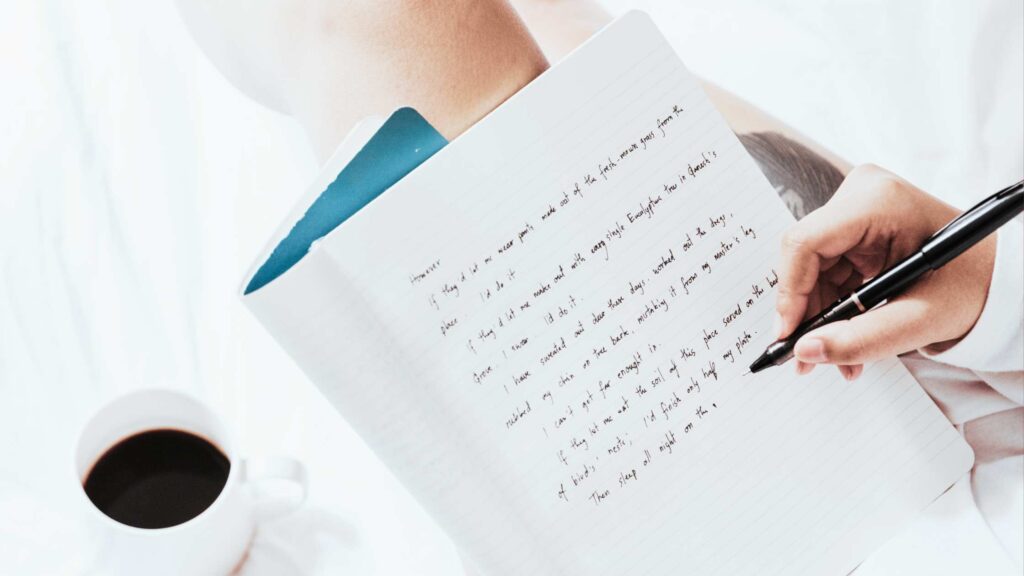 However
If they'd let me wear pants made out of the fresh-mown grass from the
place. I'd do it.
If they'd let me make out with every single Eucalyptus tree in Qamish's
Grove, I swear I'd do it.
I have sweated out dew these days, worked out the dregs,
rubbed my chin on tree bark, mistaking it from my master's leg
I can't get far enought in.
If they let me eat the soil of this place served on the bed
of birds' nests, I'd finish only half my plate.
Then sleep all night on the